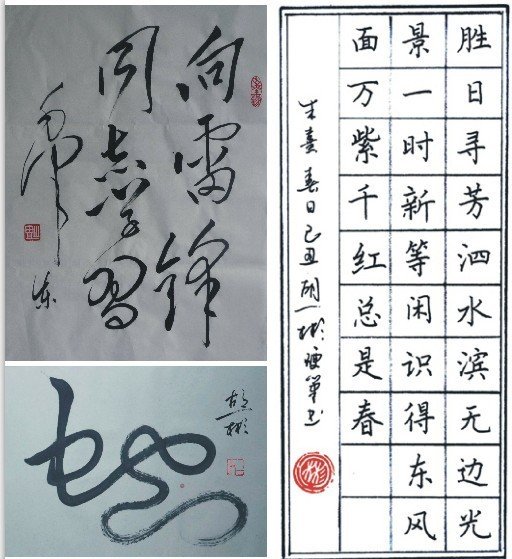 向雷锋
同志学习
毛泽东
蛇
胜日寻芳泗水滨无边光
景一时新等闲识得东风
面万紫千红总是春
朱熹 春日 己丑 彬硬笔书
彬